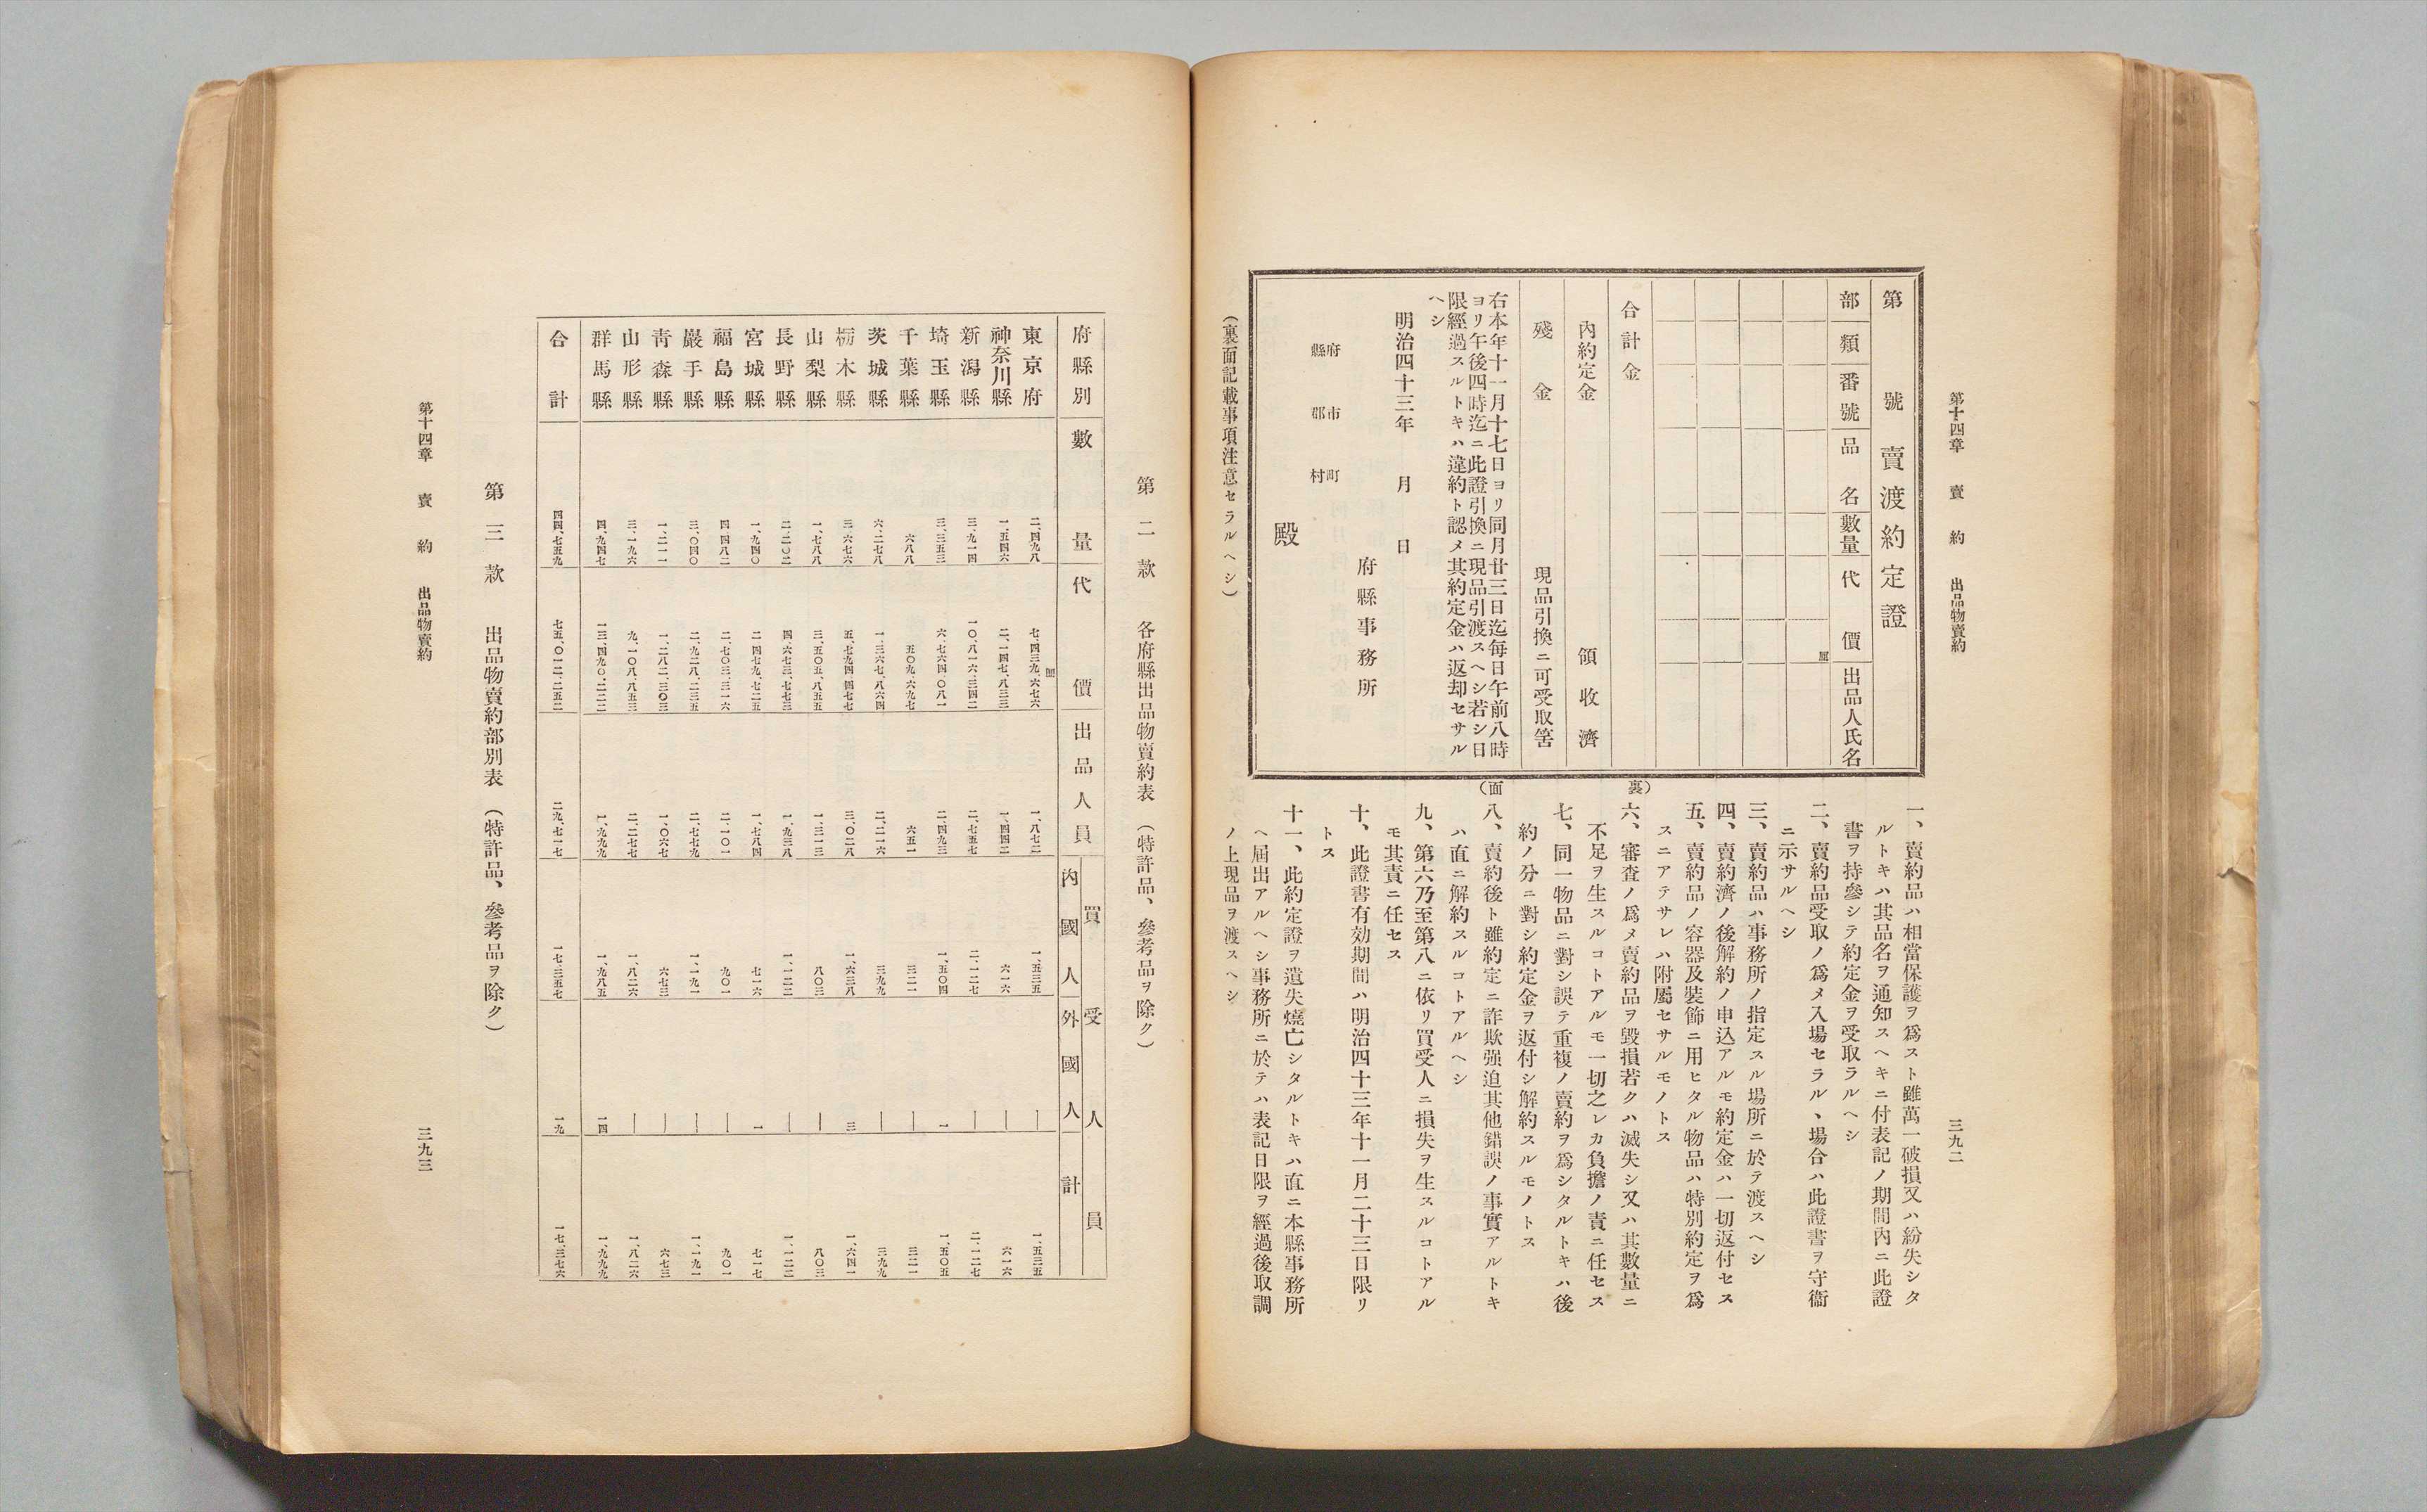 第十四章　賣約　出品物賣約
三九二
第　號　賣渡約定證
部　類　番號　品名　數量　代價　出品人氏名
圓
合計金
內約定金　領收濟
殘金　現品引換ニ可受取筈
右本年十一月十七日ヨリ同月廿三日迄每日午前八時
ヨリ午後四時迄ニ此證引換ニ現品引渡スヘシ若シ日
限經過スルトキハ違約ト認メ其約定金ハ返却セサル
ヘシ
明治四十三年　月　日
府縣事務所
府　市　町
縣　郡　村
殿
（裏面記載事項注意セラルヘシ）
（裏
面）
一、賣約品ハ相當保護ヲ爲スト雖萬一破損又ハ紛失シタ
ルトキハ其品名ヲ通知スヘキニ付表記ノ期間內ニ此證
書ヲ持參シテ約定金ヲ受取ラルヘシ
二、賣約品受取ノ爲メ入場セラルヽ場合ハ此證書ヲ守衞
ニ示サルヘシ
三、賣約品ハ事務所ノ指定スル場所ニ於テ渡スヘシ
四、賣約濟ノ後解約ノ申込アルモ約定金ハ一切返付セス
五、賣約品ノ容器及裝飾ニ用ヒタル物品ハ特別約定ヲ爲
スニアテサレハ附屬セサルモノトス
六、審査ノ爲メ賣約品ヲ毀損若クハ滅失シ又ハ其數量ニ
不足ヲ生スルコトアルモ一切之レカ負擔ノ責ニ任セス
七、同一物品ニ對シ誤テ重複ノ賣約ヲ爲シタルトキハ後
約ノ分ニ對シ約定金ヲ返付シ解約スルモノトス
八、賣約後ト雖約定ニ詐欺强迫其他錯誤ノ事實アルトキ
ハ直ニ解約スルコトアルヘシ
九、第六乃至第八ニ依リ買受人ニ損失ヲ生スルコトアル
モ其責ニ任セス
十、此證書有効期間ハ明治四十三年十一月二十三日限リ
トス
十一、此約定證ヲ遺失燒亡シタルトキハ直ニ本縣事務所
ヘ屆出アルヘシ事務所ニ於テハ表記日限ヲ經過後取調
ノ上現品ヲ渡スヘシ
第二款　各府縣出品物賣約表（特許品、參考品ヲ除ク）
府縣別　數量　代價　出品人員　買受人員
內國人　外國人　計
圓
東京府　二、四九八　七、四三九、六七六　一、八七二　一、五三五　―　一、五三五
神奈川縣　一、五四六　二、一四七、八三三　一、四四二　六一六　―　六一六
新潟縣　三、九一四　一〇、八一六、三四二　二、七五七　二、一二七　―　二、一二七
埼玉縣　三、三五三　六、七六四、〇八一　二、四九三　一、五〇四　一　一、五〇五
千葉縣　六八八　五〇九、六九七　六五一　三二一　―　三二一
茨城縣　六、二七八　一、三六七、八六四　二、二一六　三九九　―　三九九
栃木縣　三、六七六　五、七九四、四七七　三、〇二八　一、六三八　三　一、六四一
山梨縣　一、七八八　三、五〇五、八五五　一、三一三　八〇三　―　八〇三
長野縣　二、二〇二　四、六七三、七七三　一、九三八　一、一二二　―　一、一二二
宮城縣　一、九四〇　二、四七九、七二五　一、七八四　七一六　一　七一七
福島縣　四、四八二　二、七〇三、三一六　二、一〇一　九〇一　―　九〇一
巖手縣　三、〇四〇　二、九二八、二三五　二、七七九　一、一九一　―　一、一九一
靑森縣　一、二一一　一、二八二、三〇三　一、〇六七　六七三　―　六七三
山形縣　三、一九六　九、一〇八、八五三　二、二七七　一、八二六　―　一、八二六
群馬縣　四、九四七　一三、四九〇、二二二　一、九九九　一、九八五　一四　一、九九九
合計　四四、七五九　七五、〇一二、二五二　二九、七一七　一七、三五七　一九　一七、三七六
第三款　出品物賣約部別表（特許品、參考品ヲ除ク）
第十四章　賣約　出品物賣約
三九三